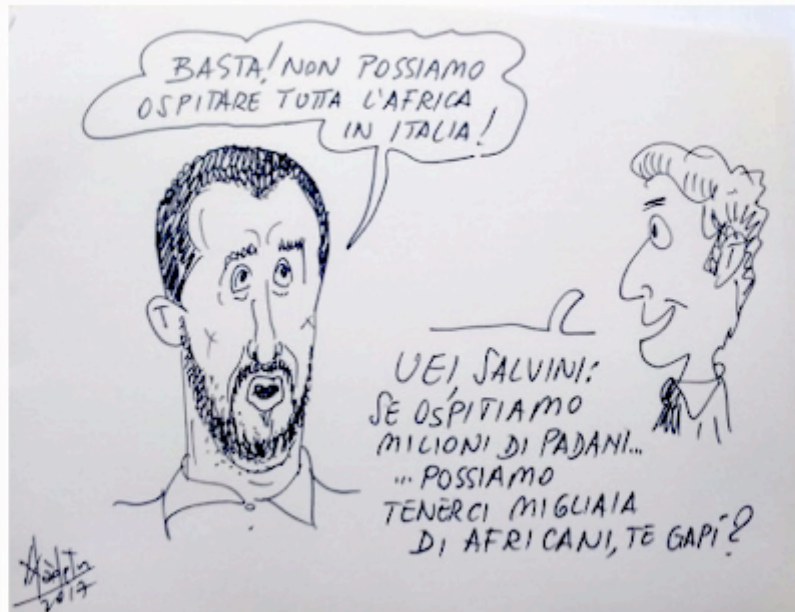 BASTA! NON POSSIAMO
OSPITARE TUTTA L'AFRICA
IN ITALIA!
UEI, SALVINI:
SE OSPITIAMO
MILIONI DI PADANI...
... POSSIAMO
TENERCI MIGLIAIA
DI AFRICANI, TE GAPÌ?
2017